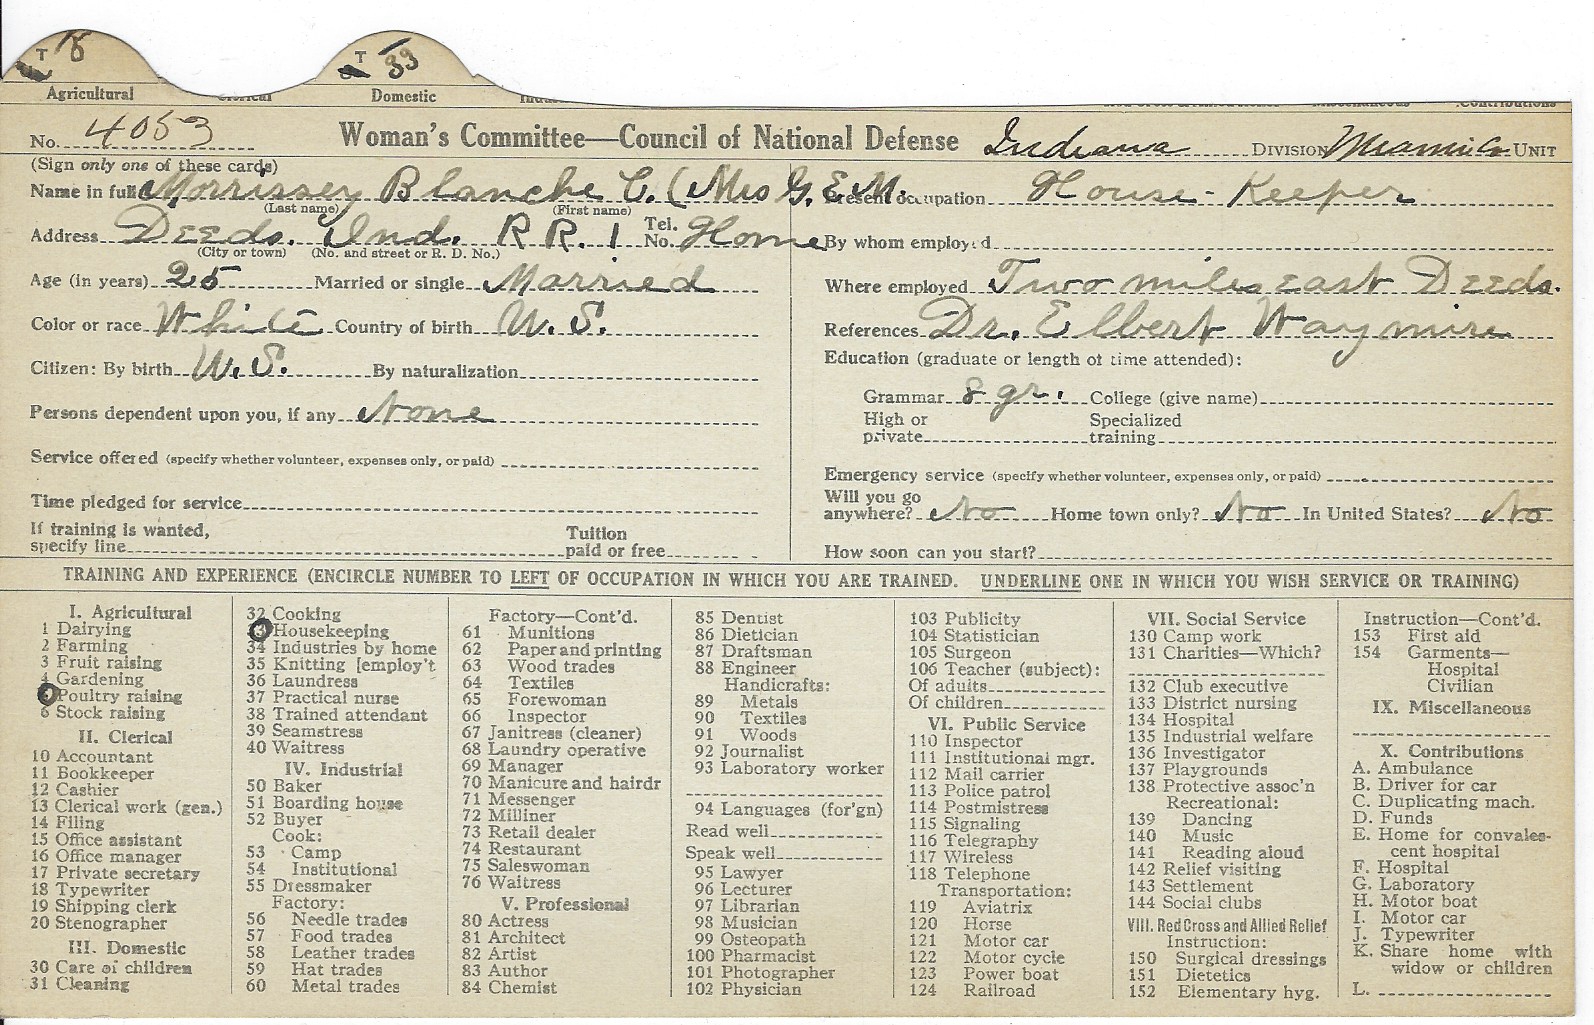 T 8 T 33
Agricultural Clerical Domestic
No. 4053 Woman's Committee—Council of National Defense Indiana DIVISION Miami Co. UNIT
(Sign only one of these cards)
Name in full Morrissey Blanche C. (Mrs G. E. M.
(Last name) (First name)
Address Deeds. Ind. R R. 1 Tel. No. Home
(City or town) (No. and street or R. D. No.)
Age (in years) 25 Married or single Married
Color or race White Country of birth U. S.
Citizen: By birth U. S. By naturalization
Persons dependent upon you, if any None
Service offered (specify whether volunteer, expenses only, or paid)
Time pledged for service
If training is wanted,
specify line Tuition paid or free
Present occupation House-Keeper
By whom employed
Where employed Two miles east Deeds.
References Dr. Elbert Waymire
Education (graduate or length of time attended):
Grammar 8 gr. College (give name)
High or private Specialized training
Emergency service (specify whether volunteer, expenses only, or paid)
Will you go
anywhere? No Home town only? No In United States? No
How soon can you start?
TRAINING AND EXPERIENCE (ENCIRCLE NUMBER TO LEFT OF OCCUPATION IN WHICH YOU ARE TRAINED. UNDERLINE ONE IN WHICH YOU WISH SERVICE OR TRAINING)
I. Agricultural
1 Dairying
2 Farming
3 Fruit raising
4 Gardening
5 Poultry raising
6 Stock raising
II. Clerical
10 Accountant
11 Bookkeeper
12 Cashier
13 Clerical work (gen.)
14 Filing
15 Office assistant
16 Office manager
17 Private secretary
18 Typewriter
19 Shipping clerk
20 Stenographer
III. Domestic
30 Care of children
31 Cleaning
32 Cooking
33 Housekeeping
34 Industries by home
35 Knitting [employ't
36 Laundress
37 Practical nurse
38 Trained attendant
39 Seamstress
40 Waitress
IV. Industrial
50 Baker
51 Boarding house
52 Buyer
Cook:
53 Camp
54 Institutional
55 Dressmaker
Factory:
56 Needle trades
57 Food trades
58 Leather trades
59 Hat trades
60 Metal trades
Factory—Cont'd.
61 Munitions
62 Paper and printing
63 Wood trades
64 Textiles
65 Forewoman
66 Inspector
67 Janitress (cleaner)
68 Laundry operative
69 Manager
70 Manicure and hairdr
71 Messenger
72 Milliner
73 Retail dealer
74 Restaurant
75 Saleswoman
76 Waitress
V. Professional
80 Actress
81 Architect
82 Artist
83 Author
84 Chemist
85 Dentist
86 Dietician
87 Draftsman
88 Engineer
Handicrafts:
89 Metals
90 Textiles
91 Woods
92 Journalist
93 Laboratory worker
94 Languages (for'gn)
Read well
Speak well
95 Lawyer
96 Lecturer
97 Librarian
98 Musician
99 Osteopath
100 Pharmacist
101 Photographer
102 Physician
103 Publicity
104 Statistician
105 Surgeon
106 Teacher (subject):
Of adults
Of children
VI. Public Service
110 Inspector
111 Institutional mgr.
112 Mail carrier
113 Police patrol
114 Postmistress
115 Signaling
116 Telegraphy
117 Wireless
118 Telephone
Transportation:
119 Aviatrix
120 Horse
121 Motor car
122 Motor cycle
123 Power boat
124 Railroad
VII. Social Service
130 Camp work
131 Charities—Which?
132 Club executive
133 District nursing
134 Hospital
135 Industrial welfare
136 Investigator
137 Playgrounds
138 Protective assoc'n
Recreational:
139 Dancing
140 Music
141 Reading aloud
142 Relief visiting
143 Settlement
144 Social clubs
VIII. Red Cross and Allied Relief
Instruction:
150 Surgical dressings
151 Dietetics
152 Elementary hyg.
Instruction—Cont'd.
153 First aid
154 Garments—
Hospital
Civilian
IX. Miscellaneous
X. Contributions
A. Ambulance
B. Driver for car
C. Duplicating mach.
D. Funds
E. Home for convales-
cent hospital
F. Hospital
G. Laboratory
H. Motor boat
I. Motor car
J. Typewriter
K. Share home with
widow or children
L.